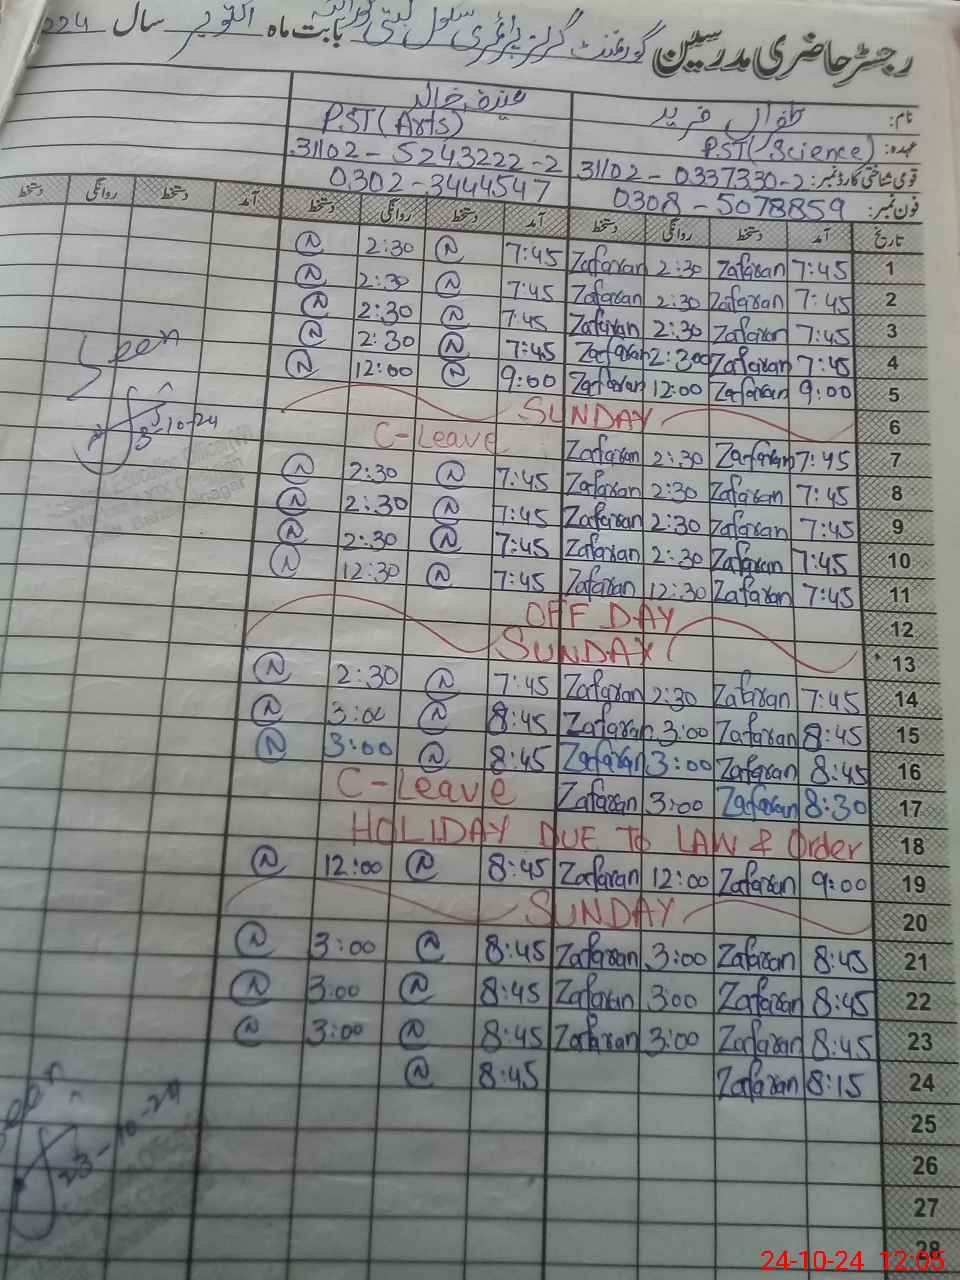 رجسٹر حاضری مدرسین گورنمنٹ گرلز پرائمری سکول بستی بابت ماہ اکتوبر سال
نام: فرید خالد
عہدہ: PST (Science) PST (Arts)
قومی شناختی کارڈ نمبر: 31102-0337330-2 31102-5243222-2
فون نمبر: 0308-5078859 0302-3444547
تاریخ آمد دستخط روانگی دستخط آمد دستخط روانگی دستخط آمد دستخط روانگی دستخط
1 7:45 Zafaran 2:30 Zafaran 7:45 2:30
2 7:45 Zafaran 2:30 Zafaran 7:45 2:30
3 7:45 Zafaran 2:30 Zafaran 7:45 2:30
4 7:45 Zafaran 2:30 Zafaran 7:45 2:30
5 9:00 Zafaran 12:00 Zafaran 9:00 12:00
6 SUNDAY
7 7:45 Zafaran 2:30 Zafaran C-Leave
8 7:45 Zafaran 2:30 Zafaran 7:45 2:30
9 7:45 Zafaran 2:30 Zafaran 7:45 2:30
10 7:45 Zafaran 2:30 Zafaran 7:45 2:30
11 7:45 Zafaran 12:30 Zafaran 7:45 12:30
12 OFF DAY
13 SUNDAY
14 7:45 Zafaran 2:30 Zafaran 7:45 2:30
15 8:45 Zafaran 3:00 Zafaran 8:45 3:00
16 8:45 Zafaran 3:00 Zafaran 8:45 3:00
17 8:30 Zafaran 3:00 Zafaran C-Leave
18 HOLIDAY DUE To LAW & Order
19 9:00 Zafaran 12:00 Zafaran 8:45 12:00
20 SUNDAY
21 8:45 Zafaran 3:00 Zafaran 8:45 3:00
22 8:45 Zafaran 3:00 Zafaran 8:45 3:00
23 8:45 Zafaran 3:00 Zafaran 8:45 3:00
24 8:15 Zafaran 8:45
25
26
27
28
Seen
8-10-24
23-10-24
24-10-24 12:05